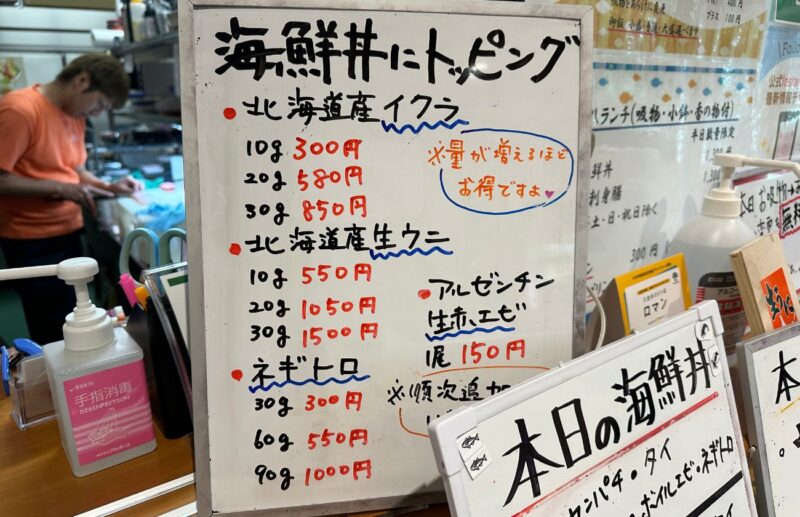 海鮮丼にトッピング
北海道産イクラ
10g 300円
20g 580円
30g 850円
※量が増えるほど
お得ですよ
北海道産生ウニ
10g 550円
20g 1050円
30g 1500円
アルゼンチン
生赤エビ
1尾 150円
ネギトロ
30g 300円
60g 550円
90g 1000円
※順次追加
本日の海鮮丼
カンパチ・タイ
ボイルエビ・ネギトロ
手指消毒
DISINFECTION
ランチ(吸物・小鉢・香の物付)
平日数量限定
鮮丼
刺身膳
土・日・祝日除く
300円
100円
公式Insta
最新情報
本日お吸物
ロマン